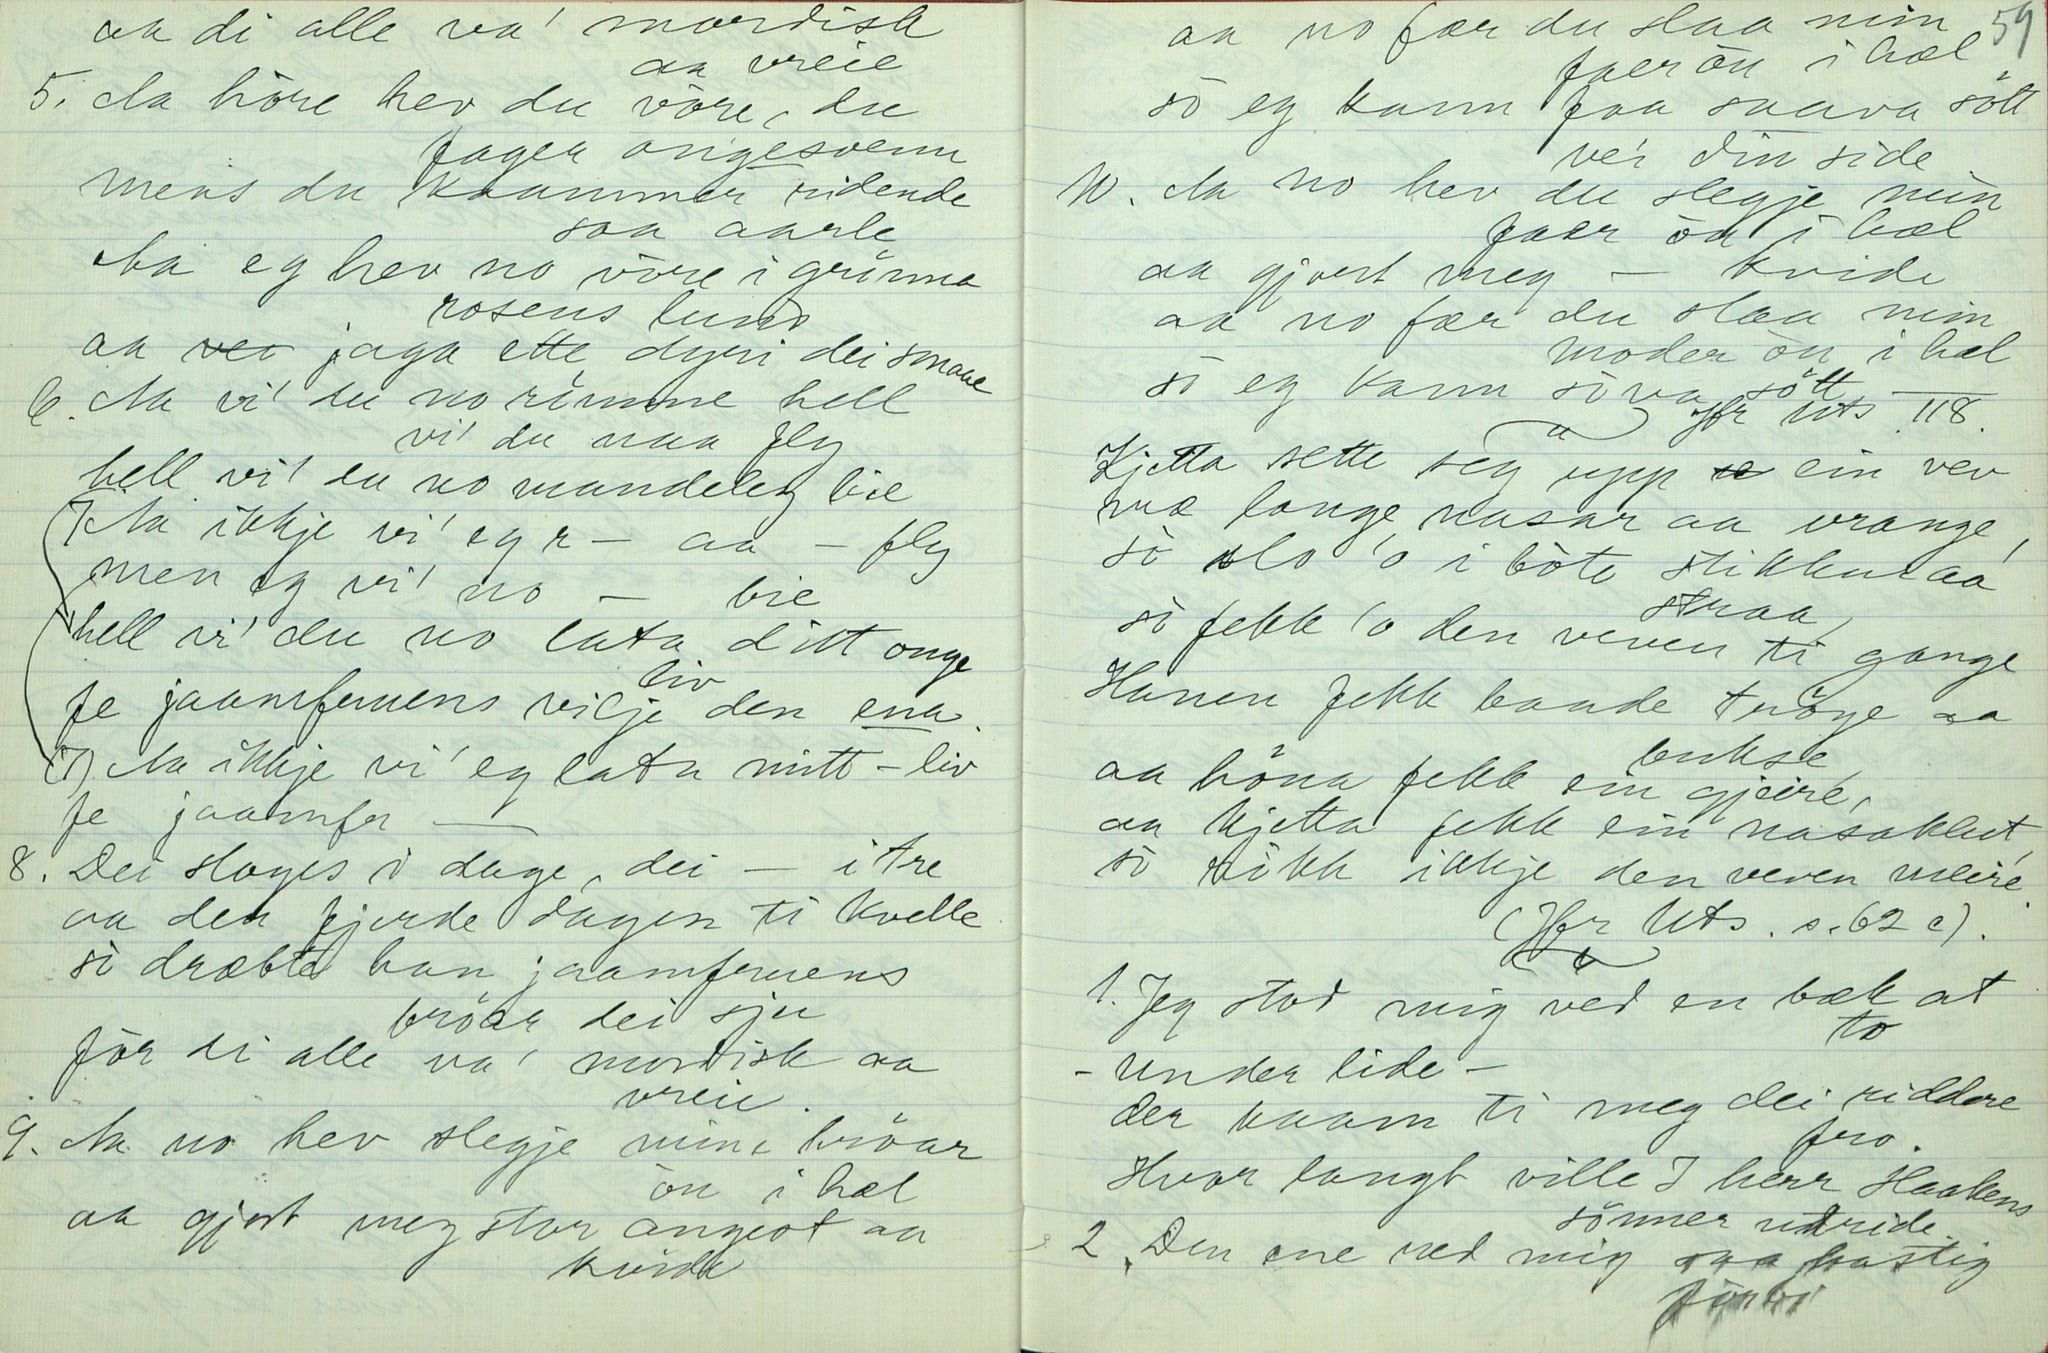 aa di alle va' mordisk
aa vreie
5. Aa höre hev du vöre, du
fager ongesvenn
mens du kaammer ridende
saa aarle
Aa eg hev no vöre i grönna
rosens lund
aa jaga ette dyri dei smaae
6. Aa vi' du no römme hell
vi' du naa fly
hell vi' du no mandeleg bie
7. Aa ikkje vi' eg r — aa — fly
men eg vi' no — bie
hell vi' du no lata ditt onge
liv
fe jaamfruens vilje den ena.
(7) Aa ikkje vi' eg lata mitt – liv
fe jaamfr —
8. Dei sloges i dage, dei — i tre
aa den fjerde dagen ti kvelle
så dræbte han jaamfruens
bröar dei sju
för di alle va' mordisk aa
vreie.
9. Aa no hev slegje mine bröar
ön i hæl
aa gjort meg stor angest aa
kvide
59
aa no fær du slaa min
faer ön i hæl
sö eg kann faa saava sött
ve'r din side
10. Aa no hev du slegje min
faer ön i hæl
aa gjort meg — kvide
aa no fær du slaa min
moder ön i hæl
sö eg kann söva sött —
Jfr Uts 118.
Kjetta sette seg upp ein vev
mæ lange nasar aa vrange,
sö slo 'o i böte stikkur aa
straa,
sö fekk 'o den veven ti gange
Hanen fekk baade tröye aa
bukse,
aa höna fekk ein gjeire,
aa kjetta fekk ein nasaklut,
sö rikk ikkje den veven meire.
(Jfr Uts. s. 62 c).
1. Jeg stod mig ved en bæk at
to
– under lide –
der kaam ti meg dei riddere
fro.
Hvor langt ville I herr Haakens
sönner udride.
2. Den ene red mig saa hastig
forbi